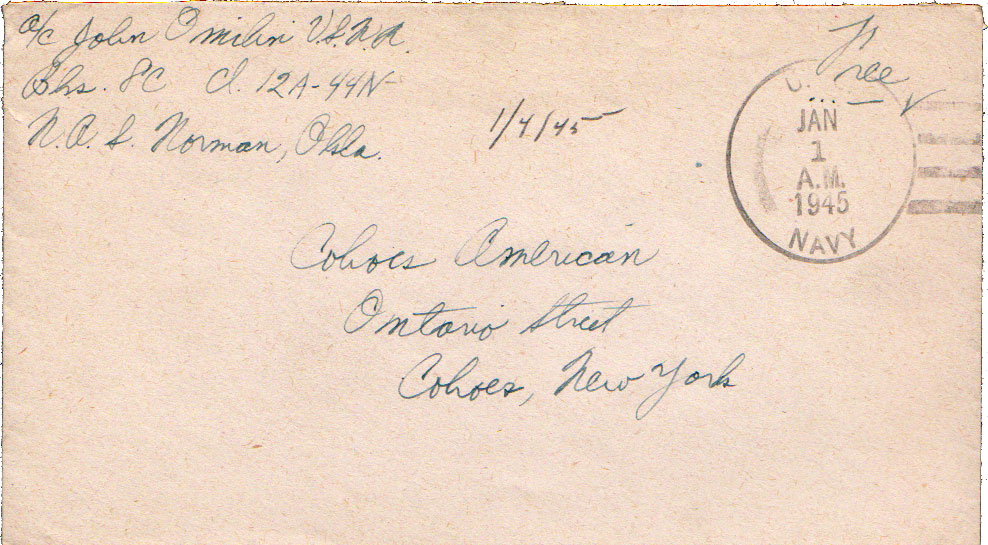 A/C John Omilin V.S.N.R.
Bks. 8C Cl. 12A-44N
N.A.S. Norman, Okla.
1/4/45
Free
U.
JAN
1
A.M.
1945
NAVY
Cohoes American
Ontario Street
Cohoes, New York